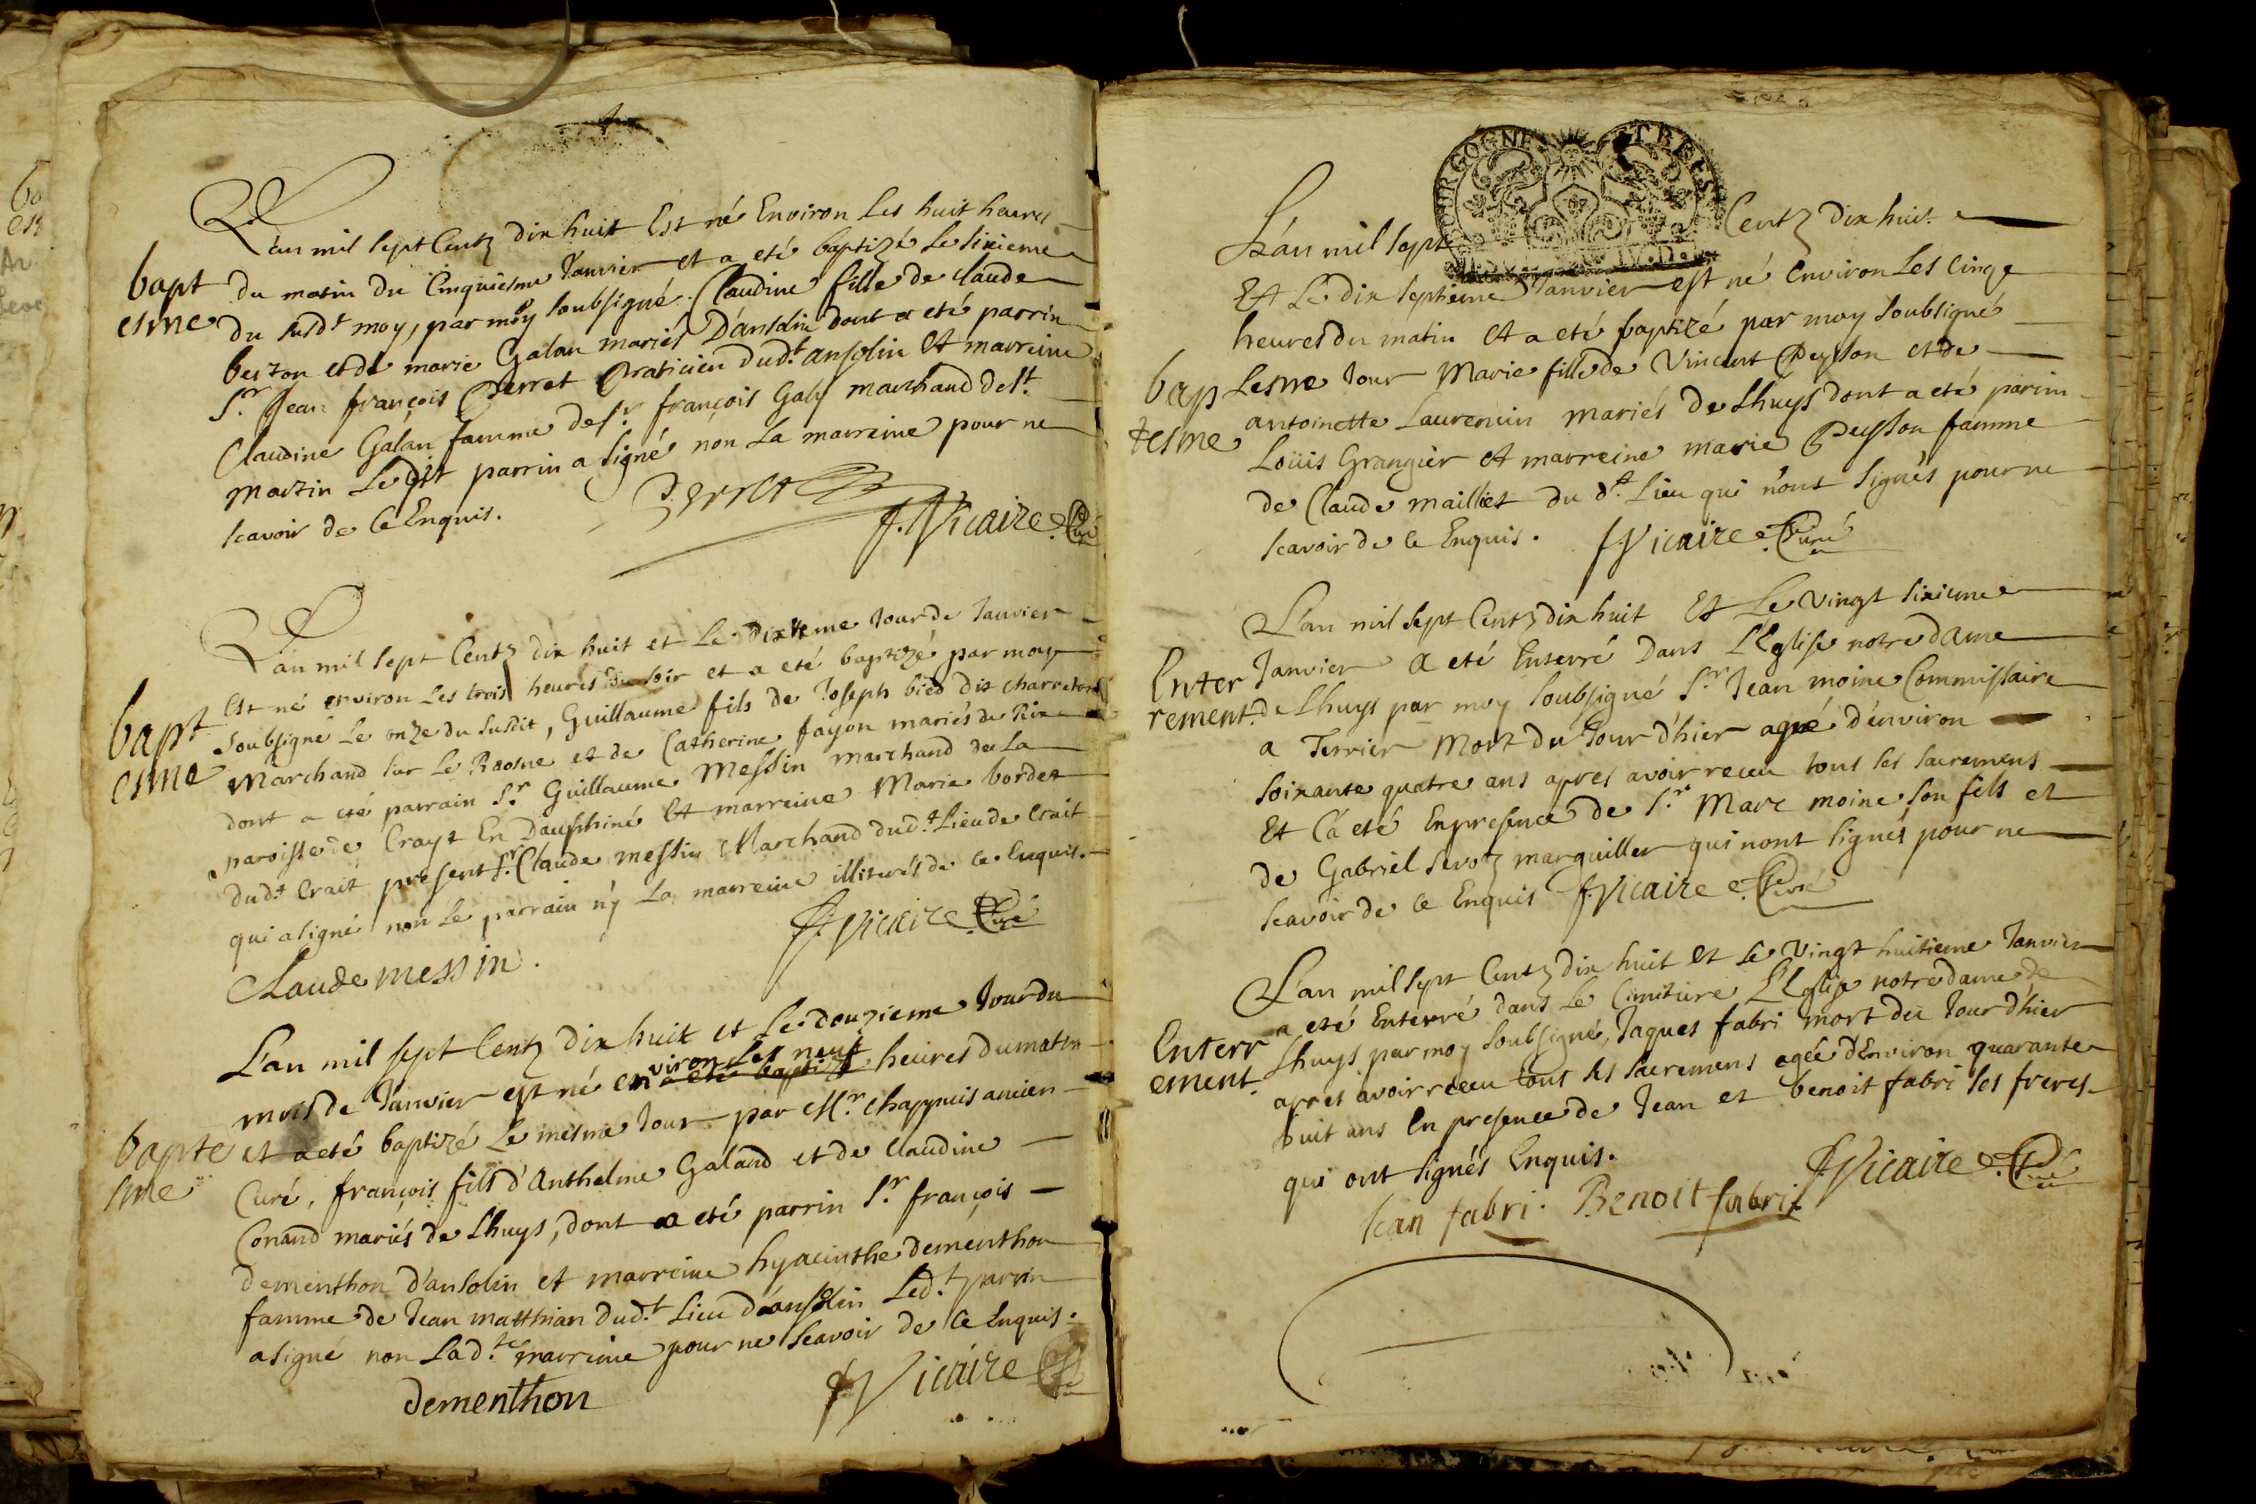 L'an mil sept Centz dix huit Est né Environ Les huit heures
bapt
esme
du matin du Cinquiesme Janvier et a eté baptizé le sixieme
du susdt moy, par moy soubsigné. Claudine fille de Claude
et de marie Galan mariés D'ansolin dont a eté parrin
Sr Jean françois Perret Praticien dudt ansolin et marreine
Claudine Galan famme de Sr françois Galy marchand de St
Martin Ledit parrin a signé non La marreine pour ne
scavoir de Ce Enquis.
Perret
f. Vicaire Curé
L'an mil sept Centz dix huit et Le dixieme Jour de Janvier
bapt
esme
Est né environ Les trois heures du soir et a eté baptizé par moy
soubsigné Le onze du susdit, Guillaume fils de Joseph bied dit charreton
Marchand sur Le Raosne et de Catherine fayon mariés de Rix
dont a eté parrain Sr Guillaume Messin marchand de La
paroisse de Crayt En Dauphiné Et marreine Marie bordet
dudt Crait present Sr Claude messin Marchand dudt Lieu de Crait
qui a signé non Le parrain ny La marreine illiterés de Ce Enquis.
f. Vicaire Curé
Claude messin.
L'an mil sept Centz dix huit et Le douzieme Jour du
mois de Janvier est né environ Les neuf a eté baptizé heures du matin
bapte
sme
et a eté baptizé Le mesme Jour par Mr. chappuis ancien
Curé, françois fils d'Anthelme Galand et de Claudine
Conand mariés de Lhuys, dont a eté parrin Sr françois
dementhon d'ansolin et marreine hyacinthe dementhon
famme de Jean matthian dudt Lieu d'ansolin Ledt parrin
a signé non Ladte marreine pour ne scavoir de Ce Enquis.
dementhon
f Vicaire Curé
BOURGOGNE ET BRESSE
L'an mil sept Centz dix huit
Et Le dix septieme Janvier est né Environ Les Cinq
heures du matin et a eté baptizé par moy soubsigné
bap
tesme
Lesme Jour Marie fille de Vincent Peysson et de
antoinette Laurencin mariés de Lhuys dont a eté parrin
Loüis Grangier et marreine marie Peysson famme
de Claude mailliet du dt Lieu qui n'ont signés pour ne
scavoir de Ce Enquis. f Vicaire Curé
L'an mil sept Centz dix huit Et Le Vingt sixieme
Enter
rement.
Janvier a eté Enterré Dans L'Eglise notre dame
de Lhuys par moy soubsigné Sr Jean moine Commissaire
a Terrier Mort du Jour d'hier agé d'environ
soixante quatre ans apres avoir receu tous les sacremens
Et C'a eté En presence de Sr Marc moine son fils et
de Gabriel marguillier qui n'ont signés pour ne
scavoir de Ce Enquis f. Vicaire Curé
L'an mil sept Centz dix huit et Le Vingt huitieme Janvier
Enterr
ement.
a eté Enterré dans Le Cimitiere L'Eglise notre dame de
Lhuys par moy soubsigné, Jaques fabri mort du Jour d'hier
apres avoir receu tous les sacremens agée d'Environ quarante
huit ans En presence de Jean et benoit fabri ses freres
qui ont signés Enquis.
f Vicaire Curé
Jean fabri. Benoit fabri